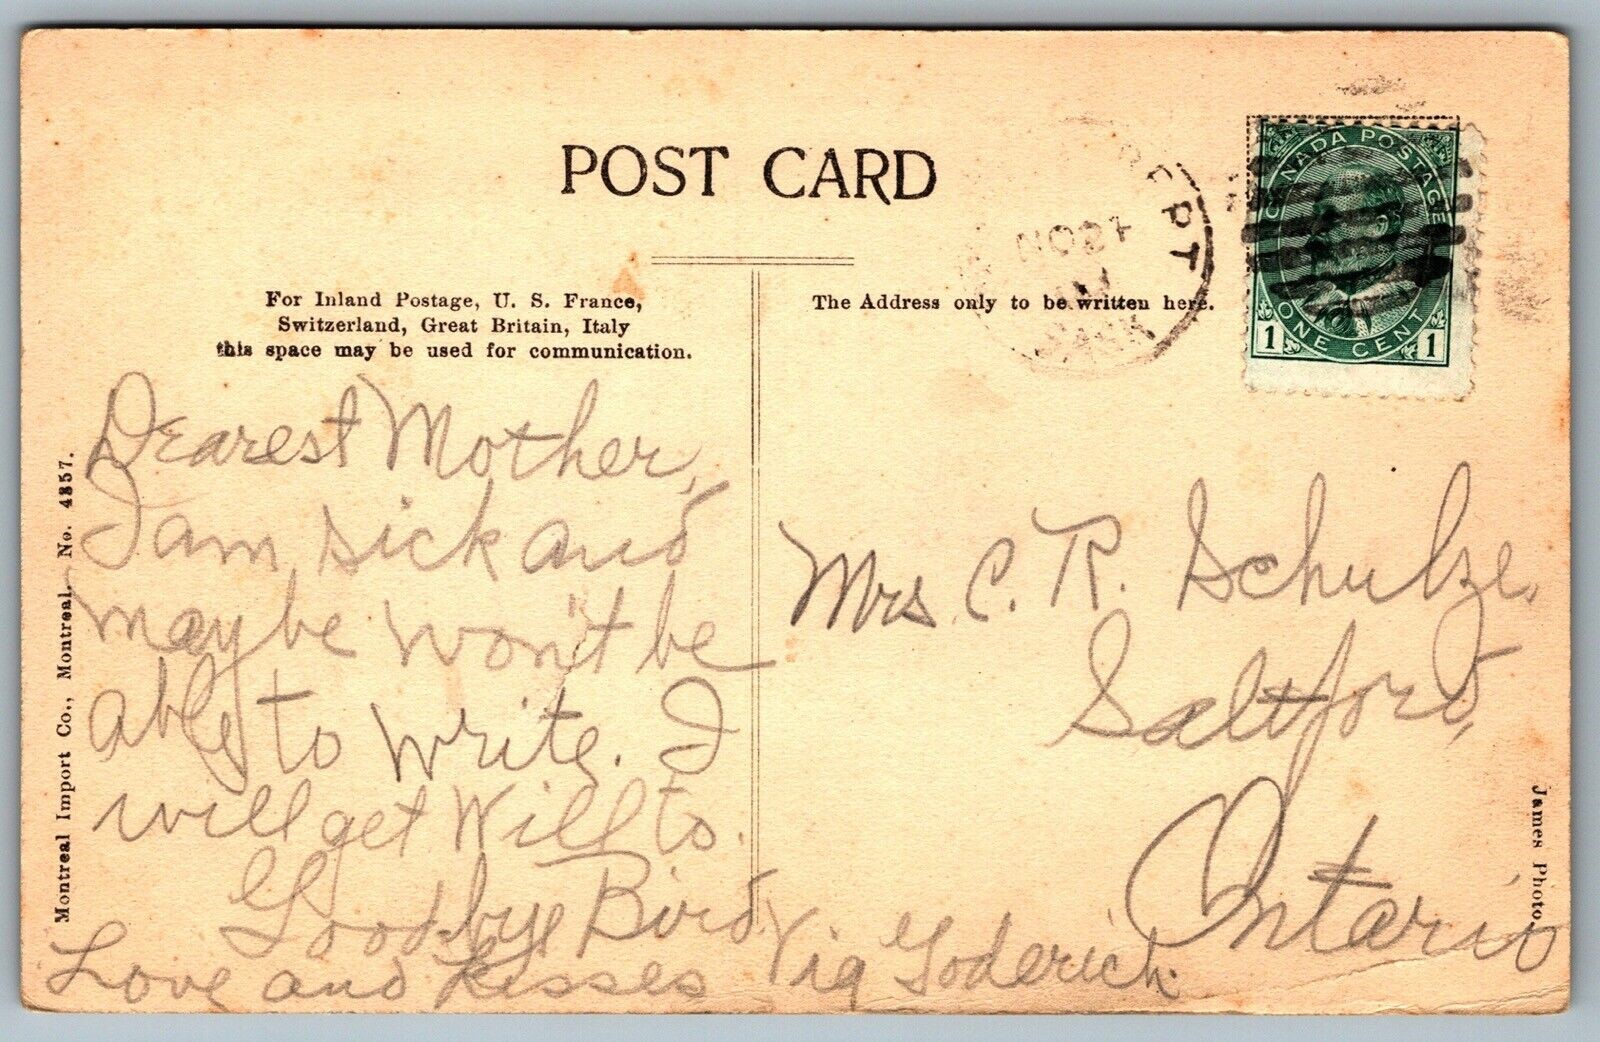 POST CARD
For Inland Postage, U. S. France,
Switzerland, Great Britain, Italy
this space may be used for communication.
The Address only to be written here.
CANADA POSTAGE
ONE CENT
1 1
Dearest Mother,
I am sick and
maybe won't be
able to write. I
will get Will to.
Goodbye Bird
Love and Kisses
Mrs C. R. Schulze.
Saltford,
Ontario
Via Goderich.
Montreal Import Co., Montreal. No. 4857.
James Photo.